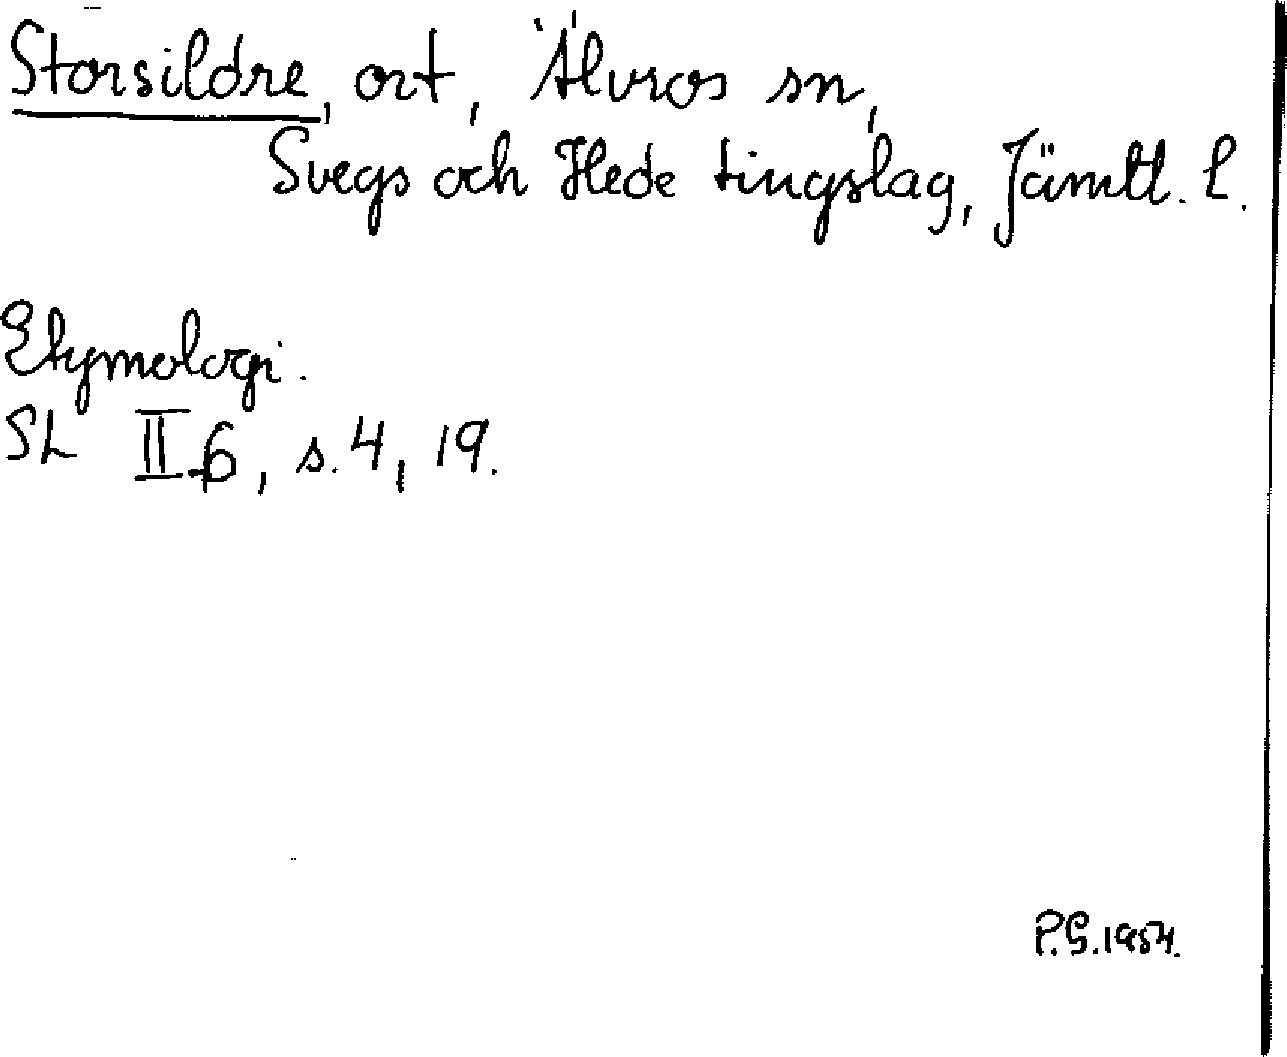 Storsildre, ort, Älvros sn,
Svegs och Hede tingslag, Jämtl. l.
Etymologi.
SL II6, s. 4, 19.
P.G.1954.